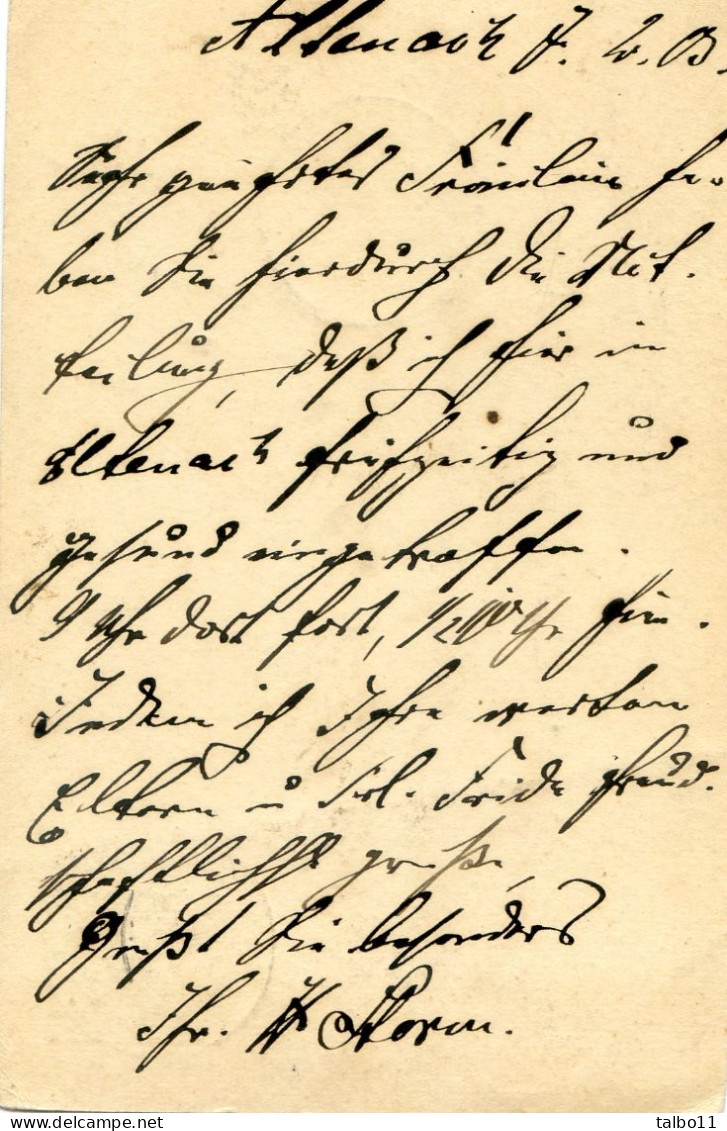 Altenach 7. 2. 03.
Sehr geehrtes Fräulein! ha-
ben Sie hierdurch die Mit-
teilung, daß ich hier in
Altenach frühzeitig und
gesund eingetroffen.
9 Uhr dort fort, 1/2 10 Uhr hier.
Indem ich Ihre werten
Eltern u Frl. Frida freund-
schaftlichst grüße,
Grüßt Sie besonders
Ihr. Storm.
talbo11